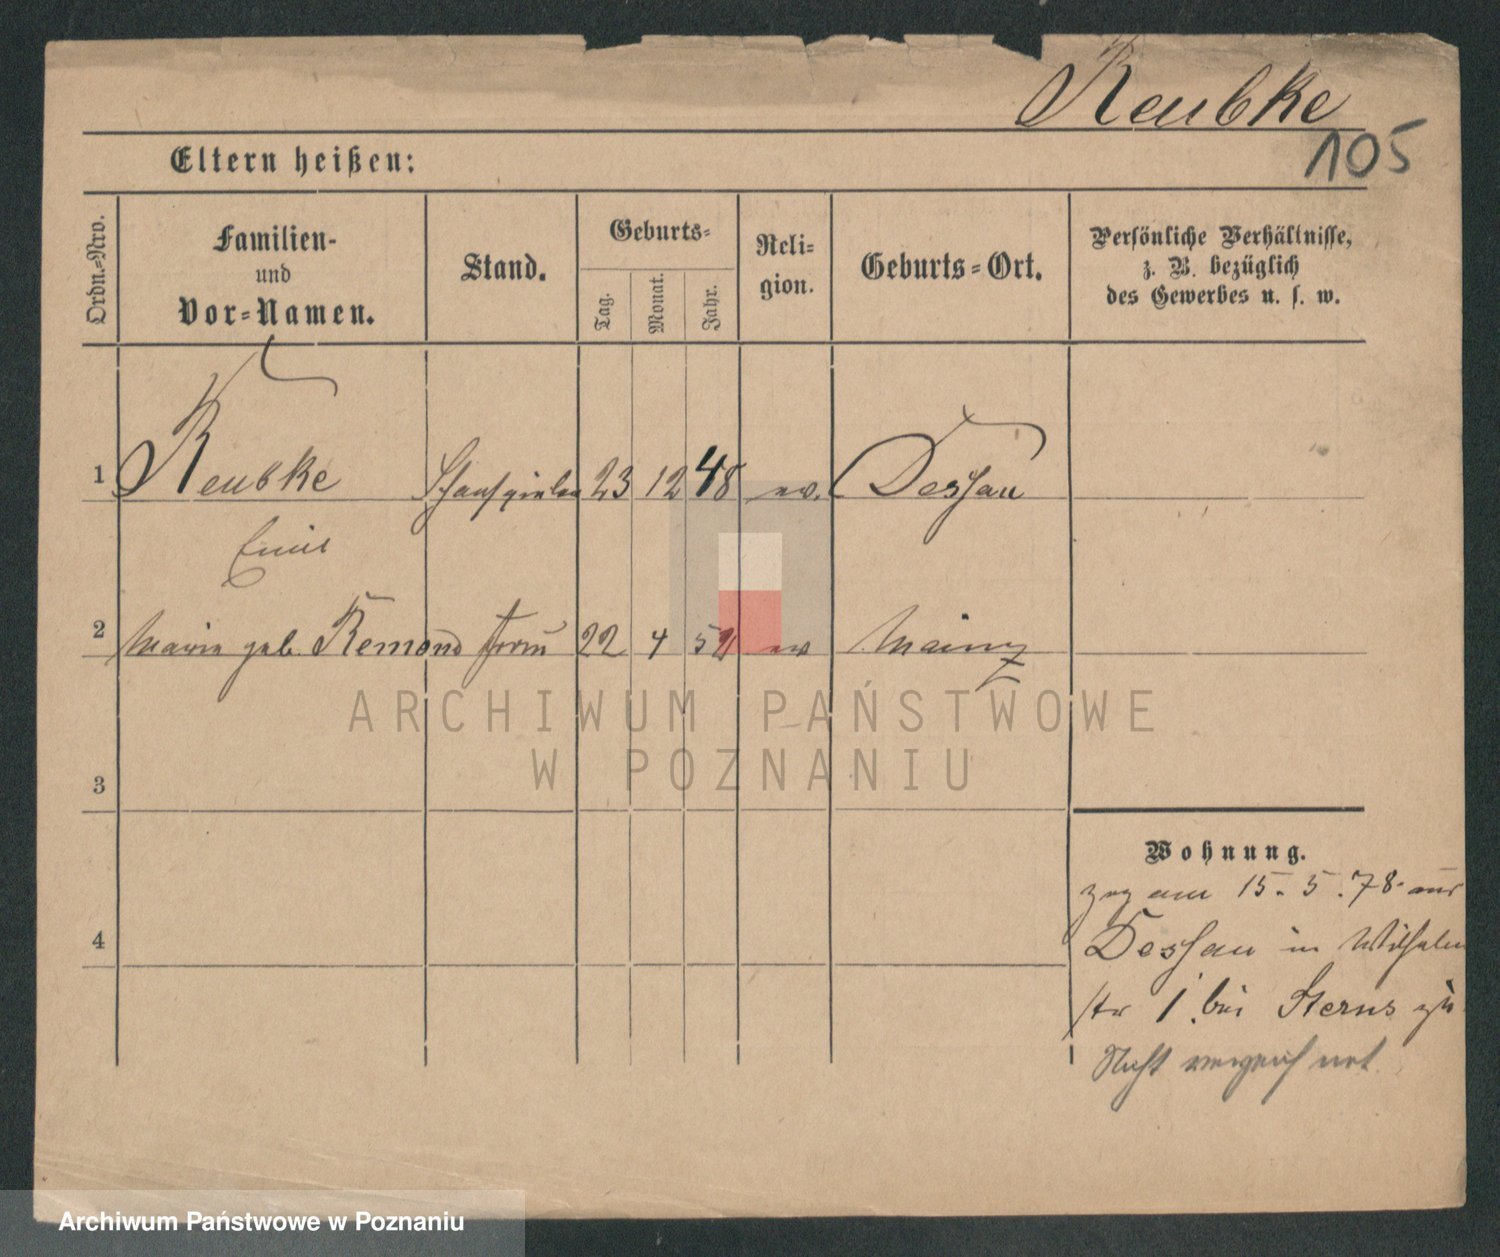 Reubke
105
Eltern heißen:
Ordn.-Nro.
Familien-
und
Vor-Namen.
Stand.
Geburts-
Tag.
Monat.
Jahr.
Reli-
gion.
Geburts-Ort.
Persönliche Verhältnisse,
z. B. bezüglich
des Gewerbes u. s. w.
1 Reubke Schauspieler 23 12 48 ev. Dessau
Emil
2 Marie geb. Remond Frau 22 4 52 ev Mainz
3
4
Wohnung.
zog am 15. 5. 78. aus
Dessau in Wilhelm
str 1 bei Sterns zu
Nicht
ARCHIWUM PAŃSTWOWE
W POZNANIU
Archiwum Państwowe w Poznaniu